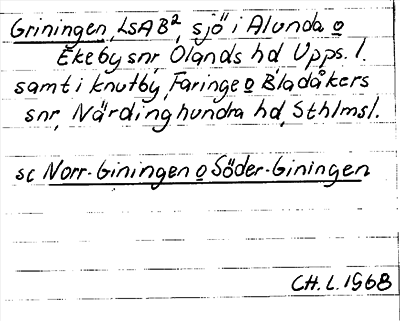 Griningen, LSAB², sjö i Alunda o
Ekeby snr Olands hd Upps. l.
samt i knutby, Faringe o Bladåkers
snr, Närdinghundra hd, Sthlmsl.
sc Norr-Giningen o Söder-Giningen
CH. L. 1968